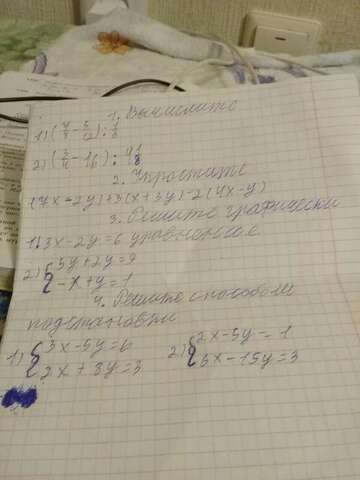 1. Вычислите
1) (4/3 - 5/12) : 1/8
2) (3/4 - 1/16) :
2. Упростите
(7x - 2y) + 3(x + 3y) - 2(4x - y)
3. Решите графически
1) 3x - 2y = 6 уравнение
2) { 5y + 2y = 9
-x + y = 1
4. Решите способом
подстановки
1) { 3x - 5y = 6 2) { 2x - 5y = 1
2x + 3y = 3 3x - 15y = 3